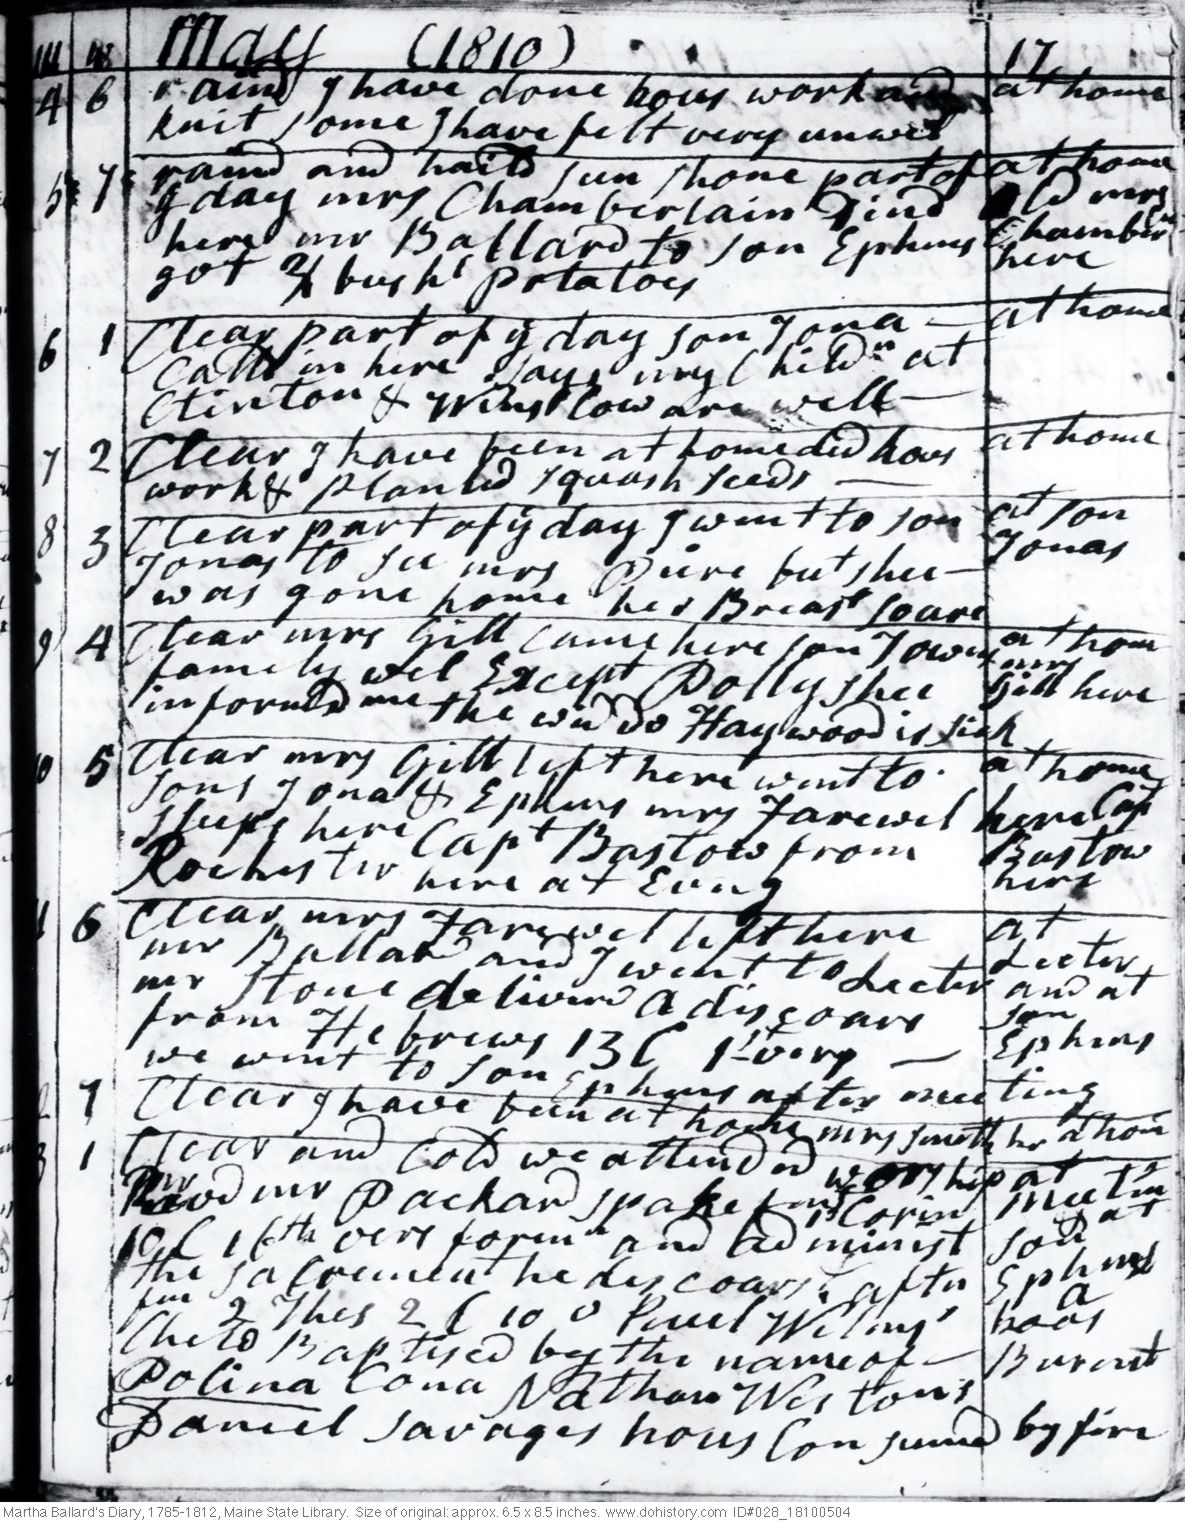 m w May (1810) 17
4 6 raind I have done hous work and at home
knit some I have felt very unwel
5 7 raind and haild sun shone part of at home
y day mrs Chamberlain Dind old mrs
here mr Ballard to son Ephms Chamberln
got 2 bushl Potatoes here
6 1 Clear part of y day son Jona at home
Calld in here says my Childn at
Clinton & Winslow are well
7 2 Clear I have been at home did hous at home
work & planted squash seeds
8 3 Clear part of y day I went to son at son
Jonas to see mrs but shee Jonas
was gone home her Breast soare
9 4 Clear mrs Gill came here son Towns at home
famely wel Except Polly shee mrs
informed me the widdo Haywood is sick Gill here
10 5 Clear mrs Gill left here went to at home
sons Jona & Ephms mrs Farewel here Capt
sleeps here Capt Bastow from Bastow
Rochester here at Evng here
11 6 Clear mrs Farewel left here at
mr Ballard and I went to Lecter Lecter
mr Stone deliverd a discoars and at
from Hebrews 13 C 1st verg son
we went to son Ephms after meeting Ephms
7 Clear I have been at home mrs Smith hr at hom
1 Clear and Cold we attended worship at
Revd mr Packard spake from 1st Corin meetin
10 C 16th vers foren and administ at
the sacrement he discoarst aftn son Ephms
fm 2 Thes 2 C 10 v a
Child Baptised by the name of hoos
Polina Cona Nathan Westons Burnt
Daniel Savages hous Consumed by fire
Martha Ballard's Diary, 1785-1812, Maine State Library. Size of original: approx. 6.5 x 8.5 inches. www.dohistory.com ID#028_18100504